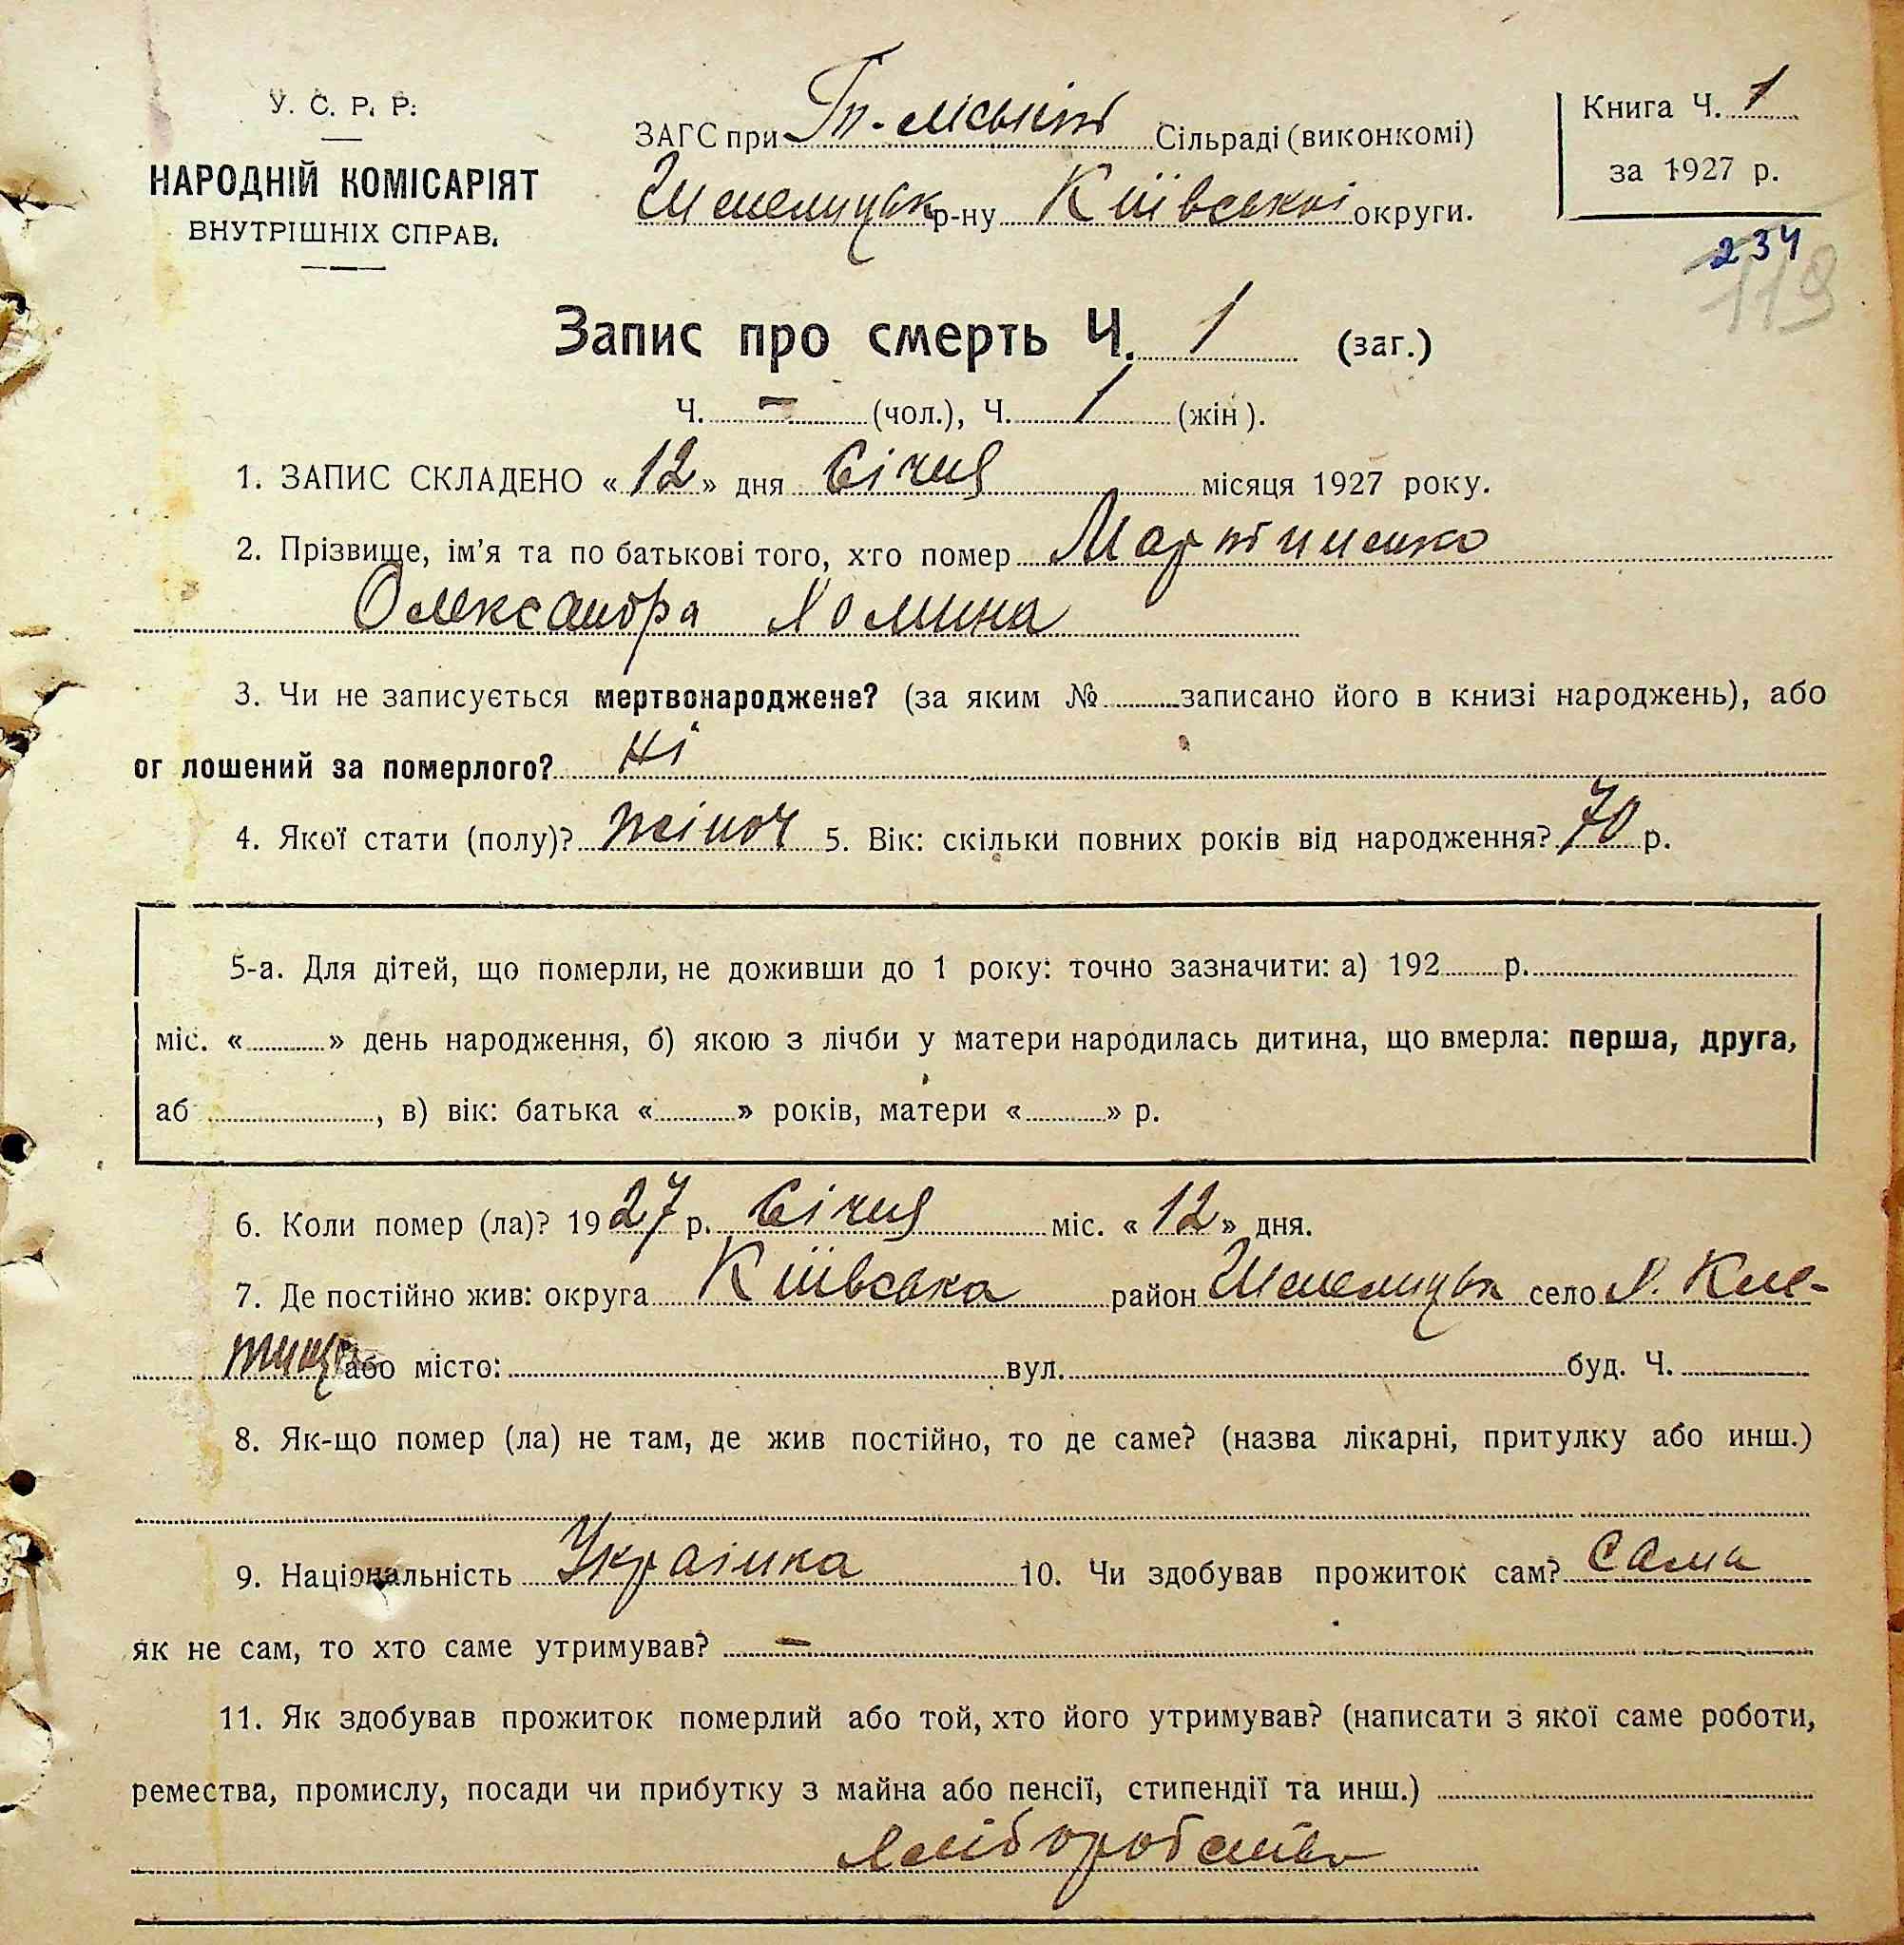 У. С. Р. Р.
НАРОДНІЙ КОМІСАРІЯТ
ВНУТРІШНІХ СПРАВ.
ЗАГС при Гн.-ліській Сільраді (виконкомі)
Шемелицьк р-ну Київської округи.
Книга Ч. 1
за 1927 р.
234
119
Запис про смерть Ч. 1 (заг.)
Ч. – (чол.), Ч. 1 (жін).
1. ЗАПИС СКЛАДЕНО «12» дня Січня місяця 1927 року.
2. Прізвище, ім'я та по батькові того, хто помер Мартиненко
Олександра Хомина
3. Чи не записується мертвонароджене? (за яким № записано його в книзі народжень), або
ог лошений за померлого? Ні
4. Якої стати (полу)? жіноч 5. Вік: скільки повних років від народження? 70 р.
5-а. Для дітей, що померли, не доживши до 1 року: точно зазначити: а) 192 р.
міс. « » день народження, б) якою з лічби у матери народилась дитина, що вмерла: перша, друга,
аб , в) вік: батька « » років, матери « » р.
6. Коли помер (ла)? 1927 р. Січня міс. «12» дня.
7. Де постійно жив: округа Київська район село
або місто: вул. буд. Ч.
8. Як-що помер (ла) не там, де жив постійно, то де саме? (назва лікарні, притулку або инш.)
9. Національність Українка 10. Чи здобував прожиток сам? Сама
як не сам, то хто саме утримував? –
11. Як здобував прожиток померлий або той, хто його утримував? (написати з якої саме роботи,
ремества, промислу, посади чи прибутку з майна або пенсії, стипендії та инш.)
Хліборобство